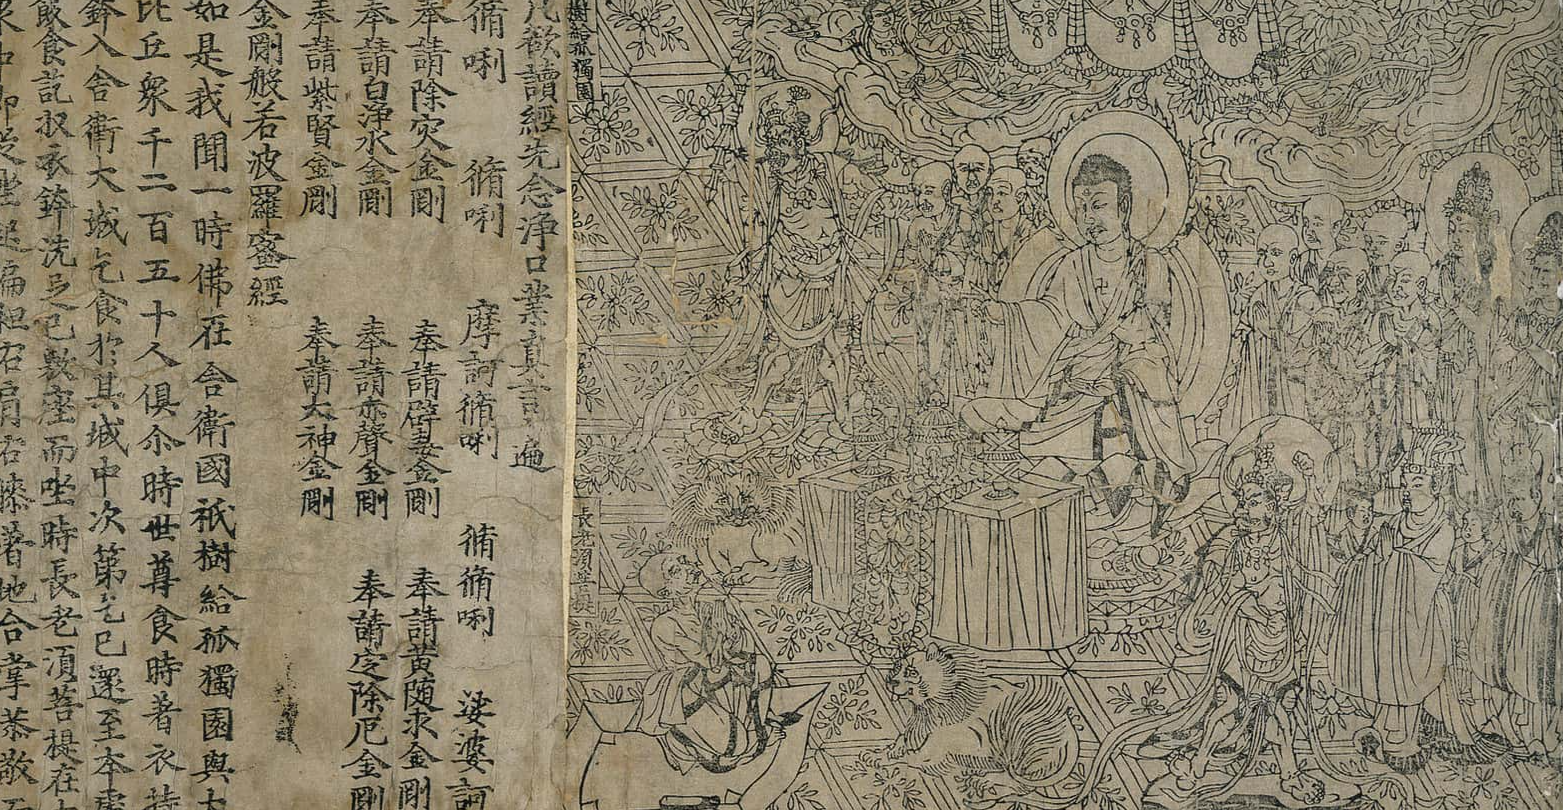 樹給孤獨園
長老須菩提
凡欲讀經先念淨口業真言一遍
脩唎 脩唎 摩訶脩唎 脩脩唎 娑婆訶
奉請除灾金剛 奉請辟毒金剛 奉請黃随求金剛
奉請白淨水金剛 奉請赤聲金剛 奉請定除厄金剛
奉請紫賢金剛 奉請大神金剛
金剛般若波羅蜜經
如是我聞一時佛在舍衛國祇樹給孤獨園與大
比丘眾千二百五十人俱尒時世尊食時著衣持
鉢入舍衛大城乞食於其城中次第乞已還至本處
飯食訖収衣鉢洗足已敷座而坐時長老須菩提在大
眾中即從座起偏袒右肩右膝著地合掌恭敬